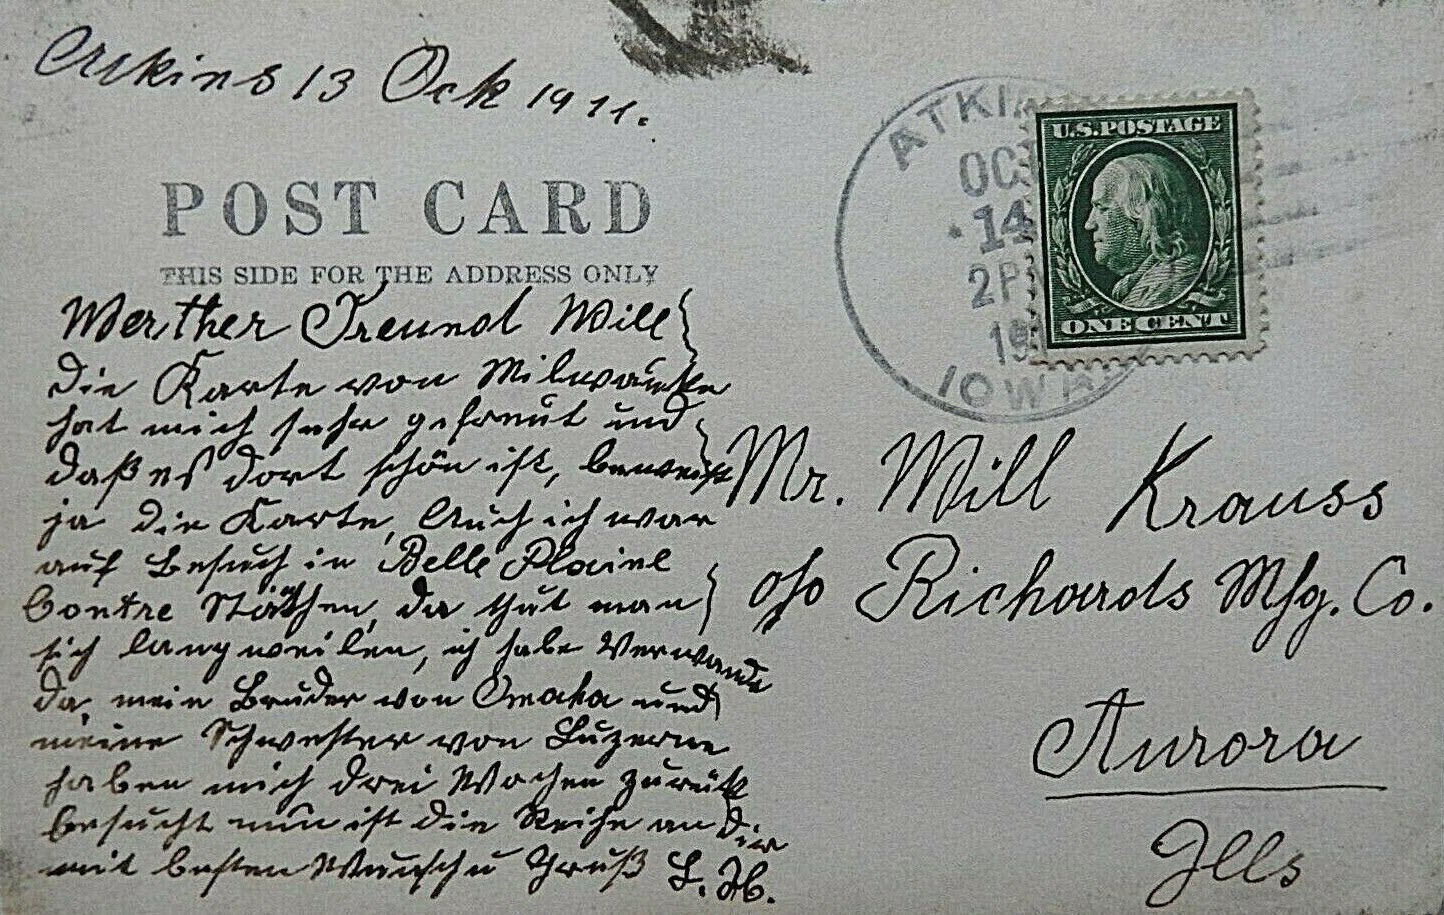 Atkins 13 Ock 1911.
POST CARD
THIS SIDE FOR THE ADDRESS ONLY
ATKIN
OC
14
2P
19
IOWA
U.S. POSTAGE
ONE CENT
Werther Freund Will
die Karte von Milwaukee
hat mich sehr gefreut und
daß es dort schön ist, beweist
ja die Karte, Auch ich war
auf Besuch in Belle Plaine
Städtchen, da thut man
sich langweilen, ich habe Verwande
da, mein Bruder von Omaha und
meine Schwester von Luzerne
haben mich drei Wochen zurück
besucht nun ist die Reihe an dir
mit besten Wunsch u Gruß L. H.
Mr. Will Krauss
c/o Richards Mfg. Co.
Aurora
Ills